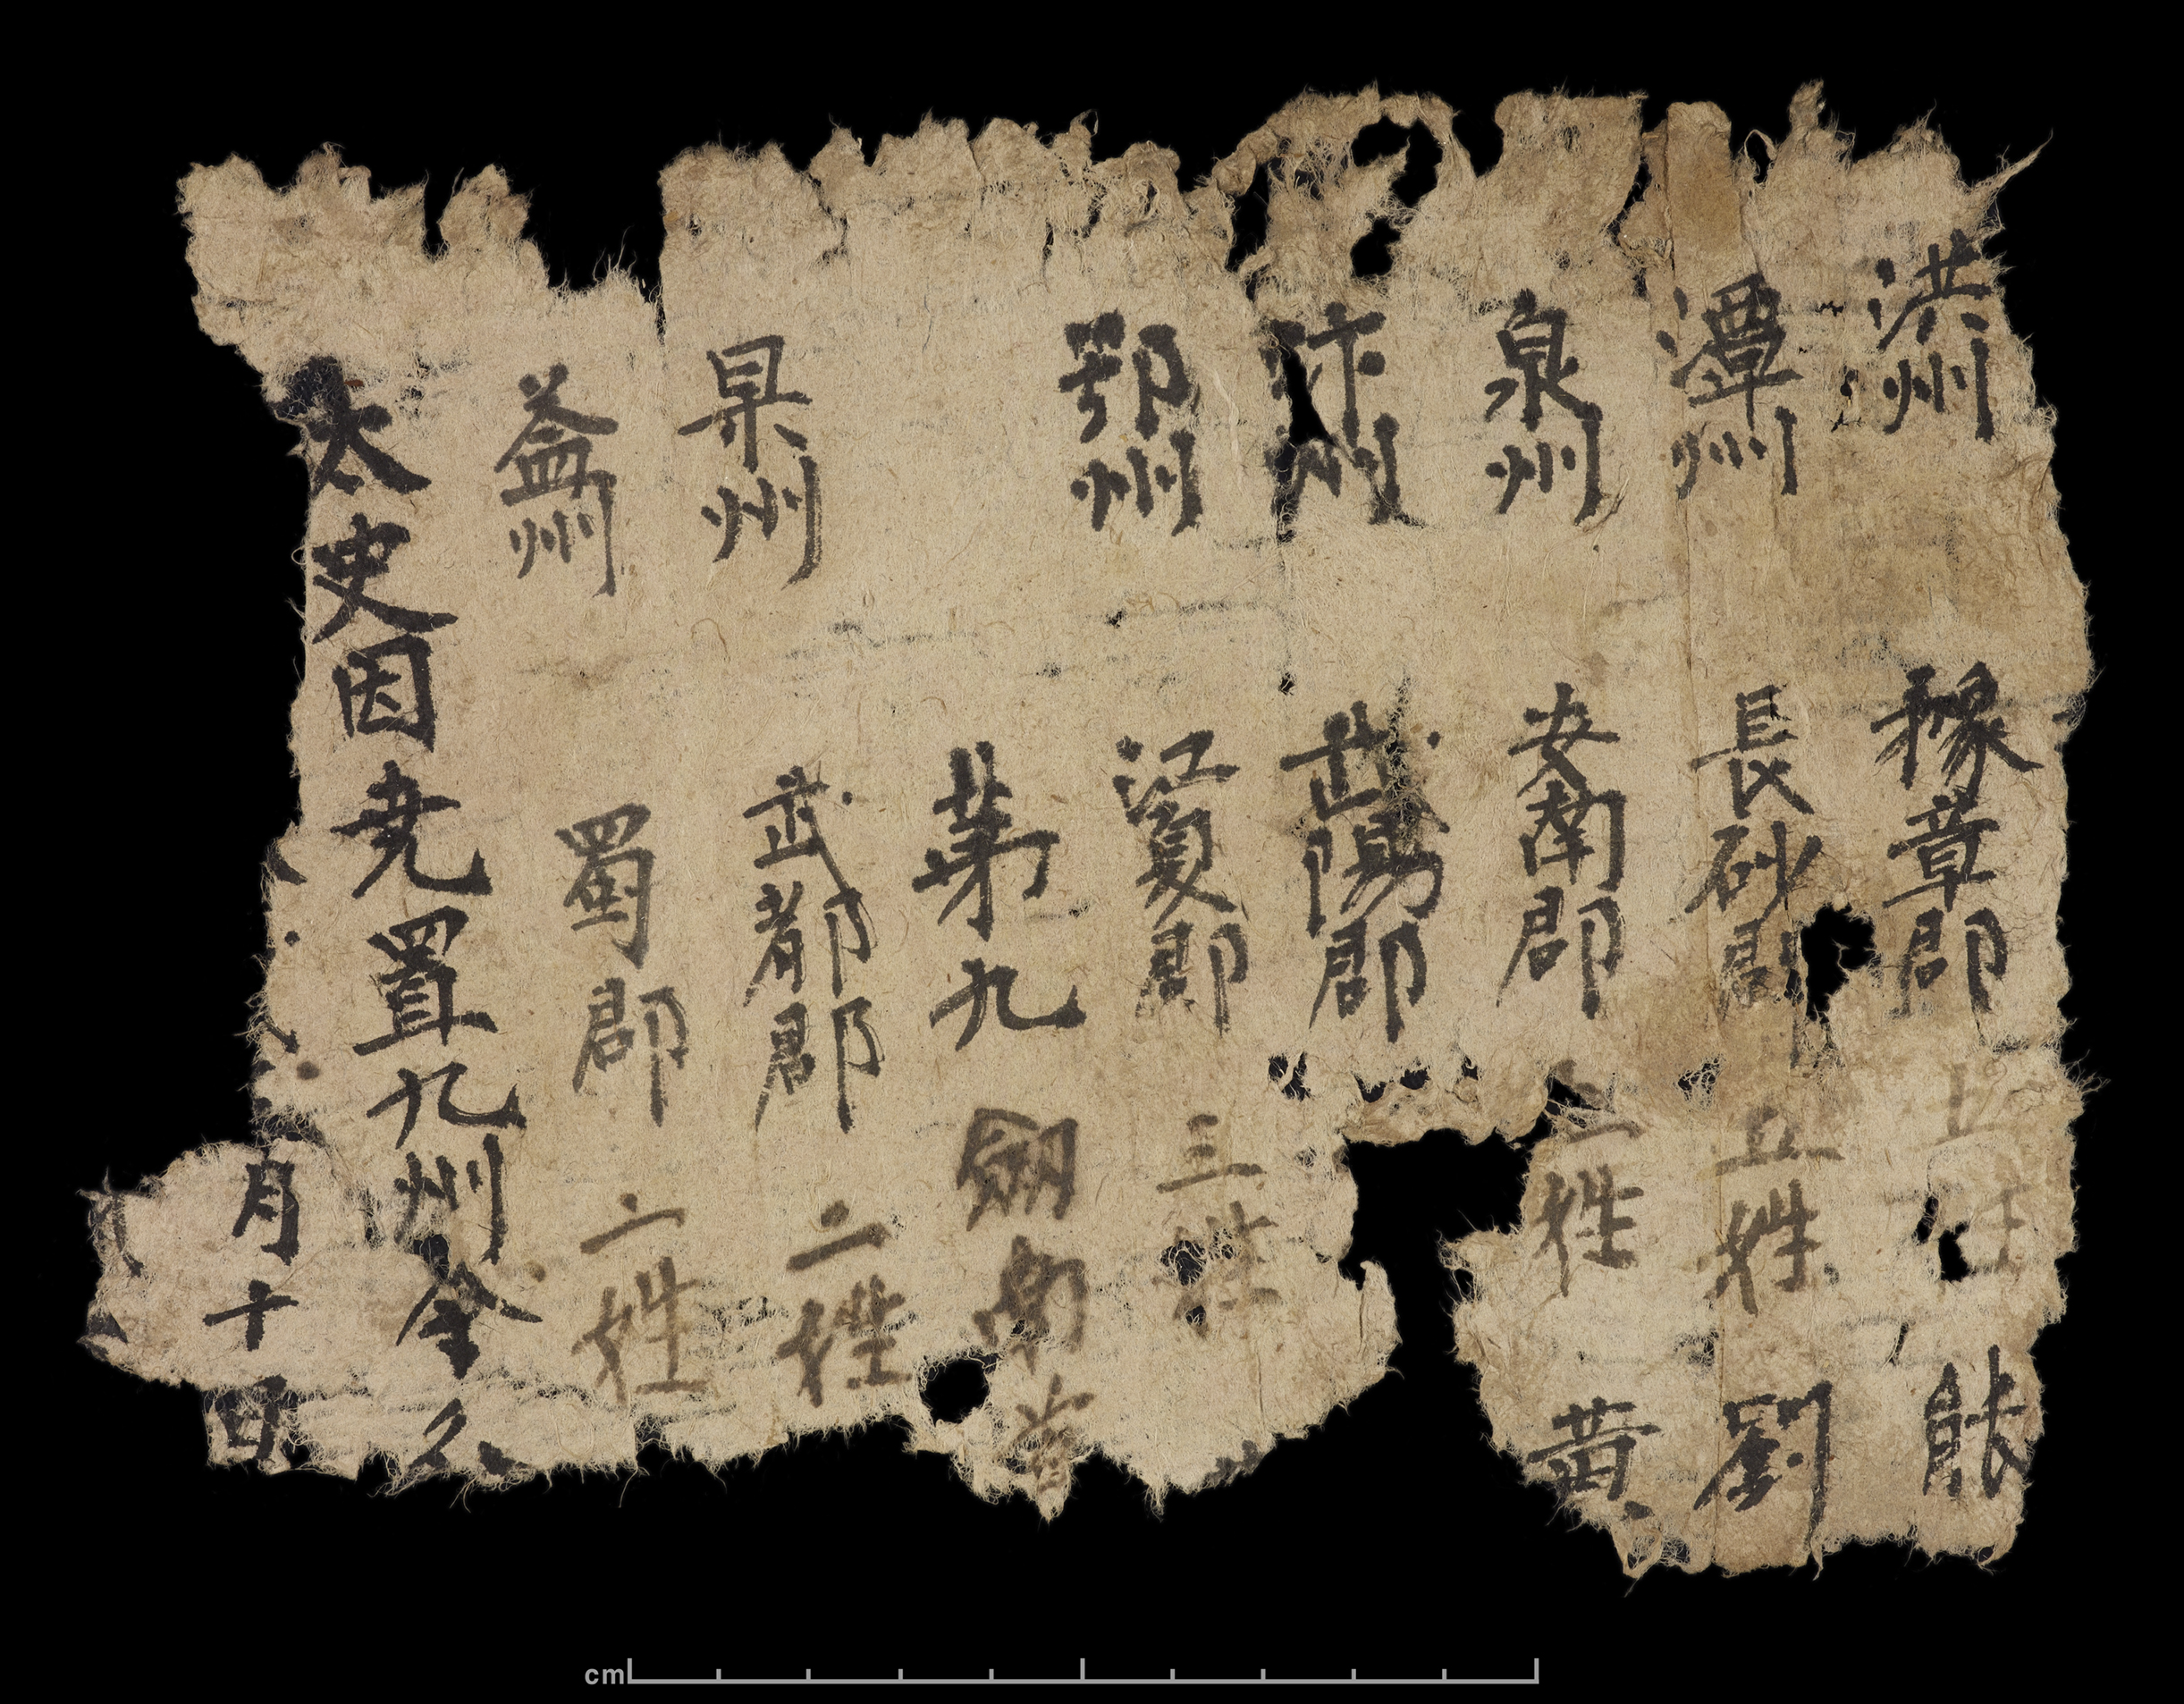 洪州 豫章郡 五姓 熊
潭州 長砂郡 五姓 劉
泉州 安南郡 姓 黃
汴州 武陽郡
鄂州 江夏郡 三姓
第九 劒南
果州 武都郡 二姓
益州 蜀郡 二姓
太史因堯置九州今
月十日
cm